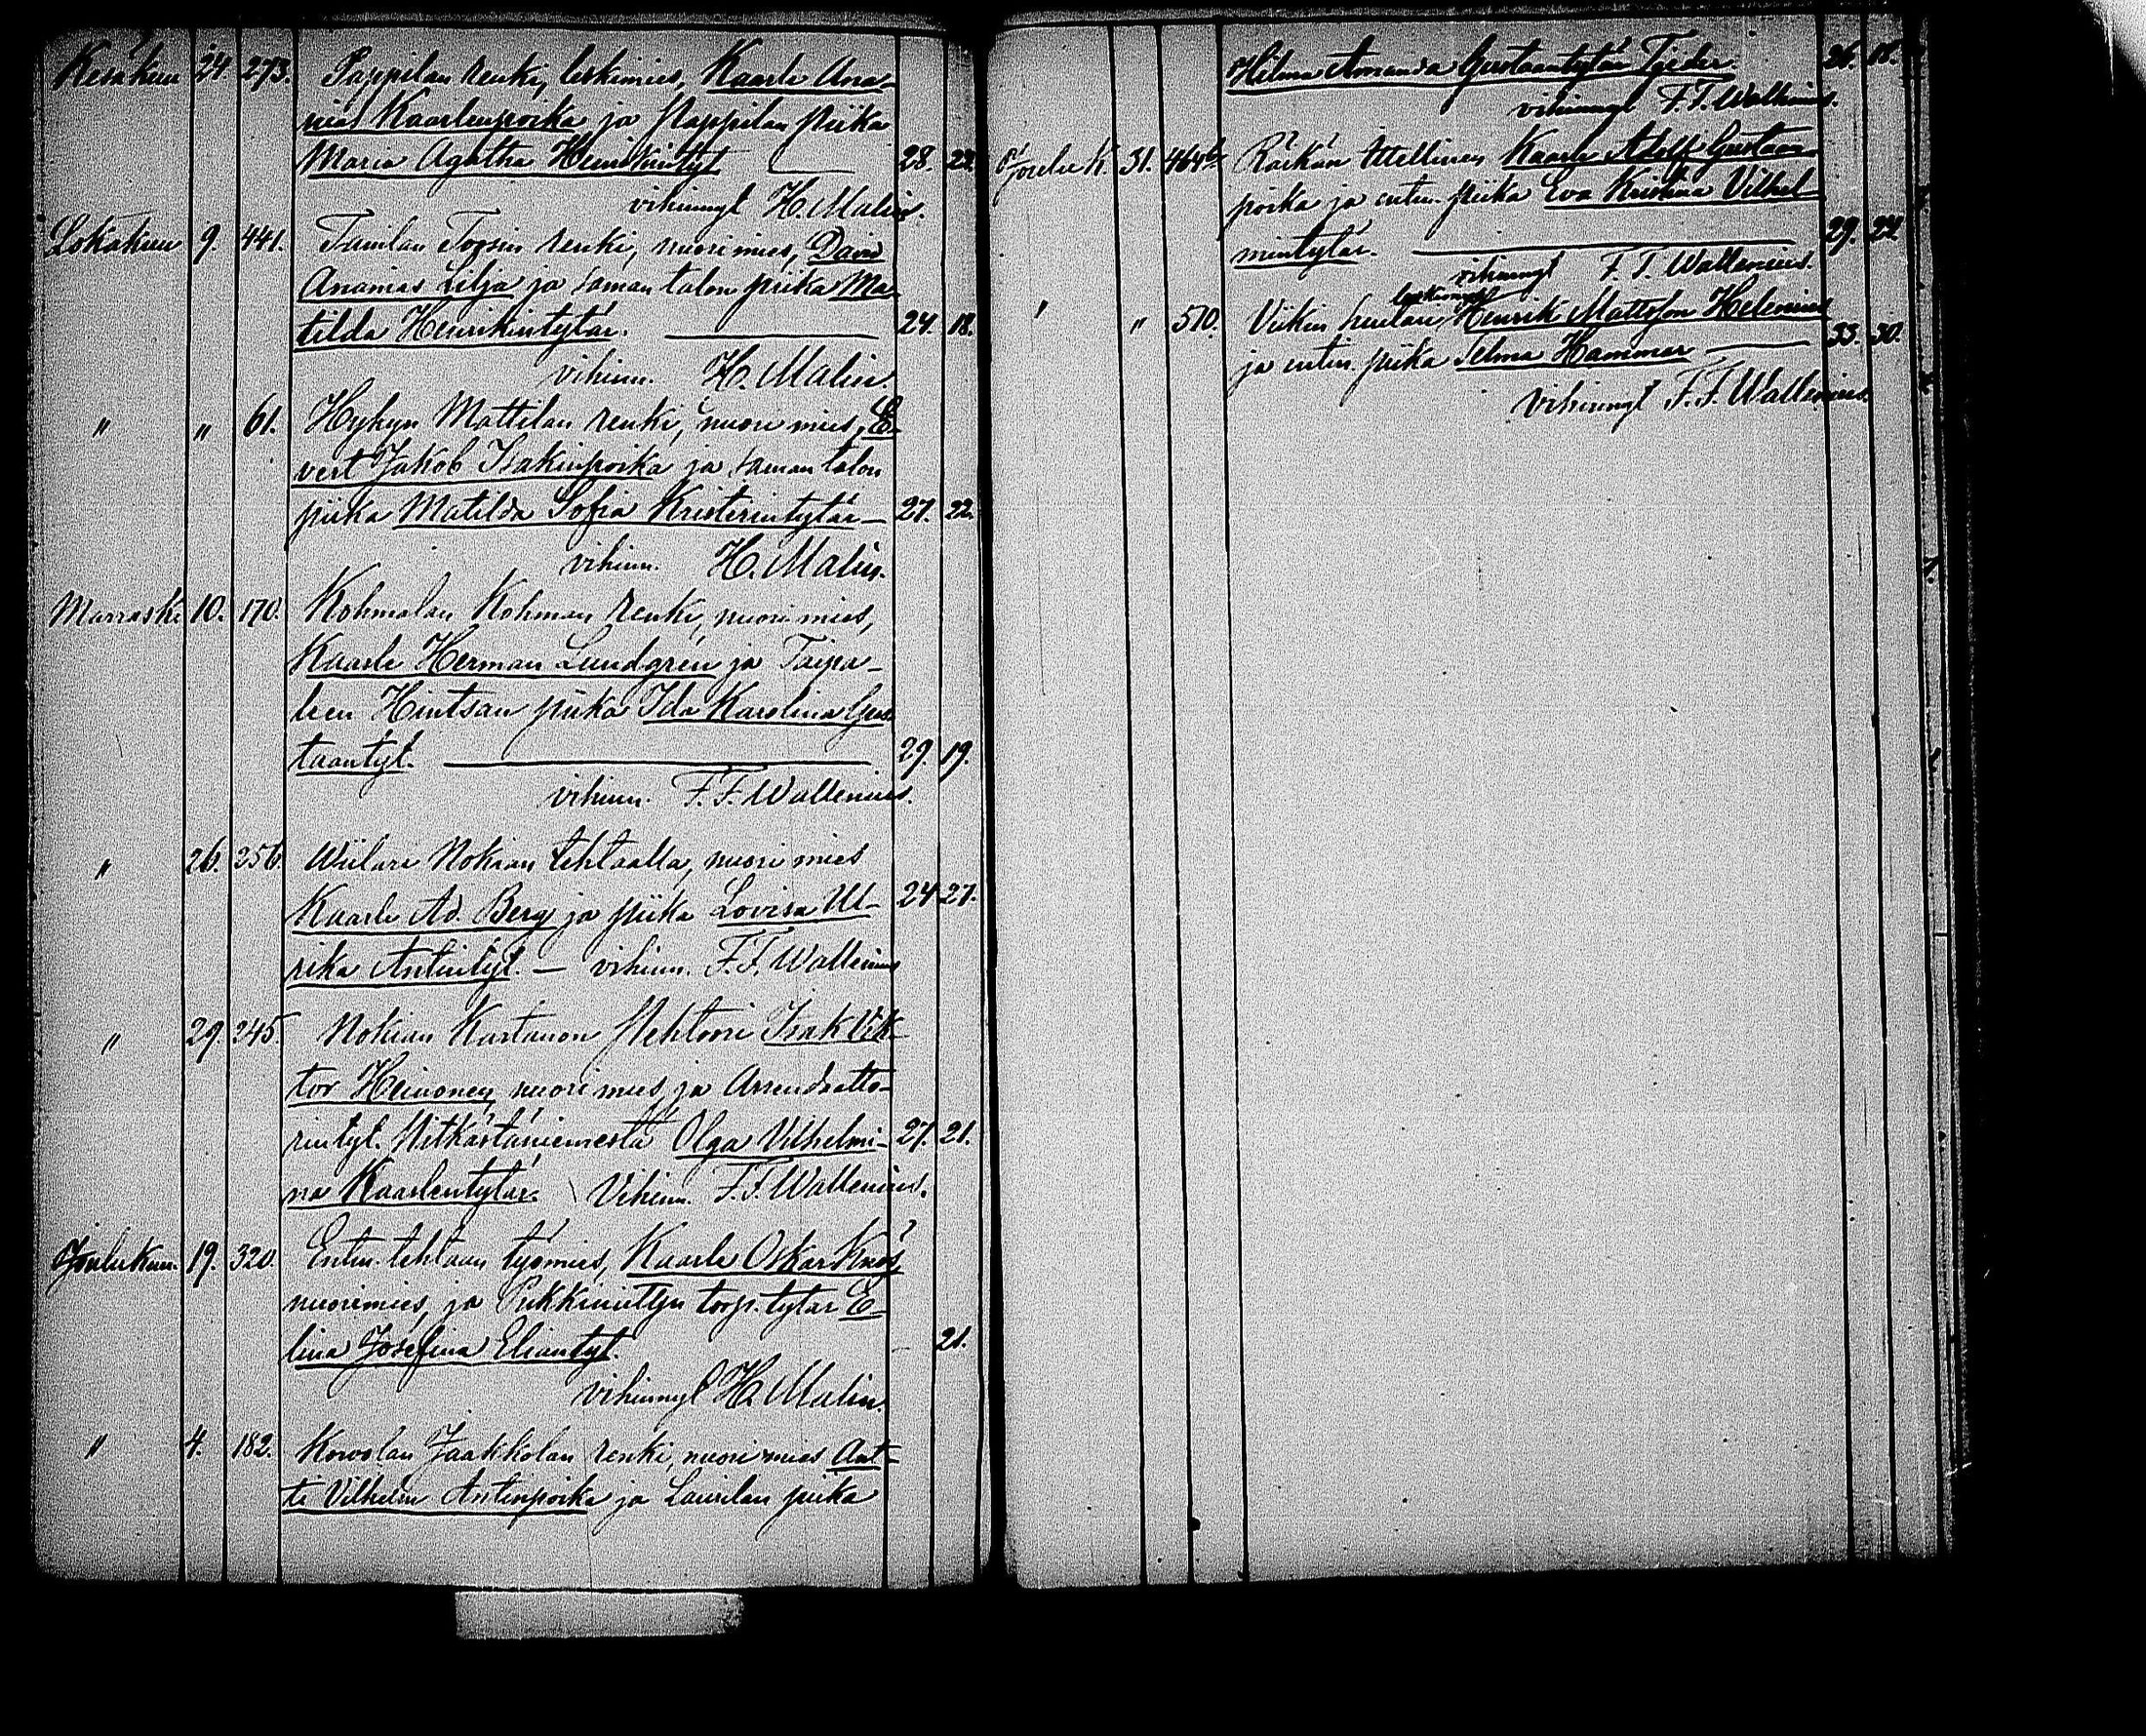 Kesäkuu 24. 273. Pappilan renki, leskimies, Kaarle Ana-
nias Kaarlenpoika ja Pappilan piika
Maria Agatha Heinrikintyt. 28. 22.
vihinnyt H. Malin.
Lokakuu 9. 441. renki, nuori mies, David
Ananias Lilja ja saman talon piika Ma-
tilda Henrikintytär. 24. 18.
vihinn. H. Malin.
" " 61. Hyhyn Mattilan renki, nuori mies, E-
vert Jakob Isakinpoika ja saman talon
piika Matilda Sofia Kristerintytär 27. 22.
vihinn. H. Malin.
Marrask. 10. 170. Kohmalan Kohman renki, nuori mies,
Kaarle Herman Lundgren ja Taipa-
leen Hintsan piika Ida Karolina Gus-
taantyt. 29. 19.
vihinn. F. F. Wallenius.
" 26. 256. Wiilari Nokian tehtaalla, nuori mies
Kaarle Ad. Berg ja piika Lovisa Ul- 24 27.
rika Antintyt. — vihinn. F. F. Wallenius
" 29. 245. Nokian Kartanon Pehtoori Isak Vik-
tor Heinonen, nuori mies, ja Arrendaatto-
rintyt. Pitkästäniemestä Olga Vilhelmi- 27. 21.
na Kaarlentytär. Vihinn. F. F. Wallenius.
Joulukuu. 19. 320. Entin. tehtaan työmies, Kaarle Oskar Knös,
nuorimies, ja torp. tytär E-
lina Josefina Eliantyt. 21.
vihinnyt H. Malin.
" 4. 182. Korvolan Jaakkolan renki, nuori mies Ant-
ti Vilhelm Antinpoika ja Laurilan piika
Helma Amanda Gustaantytär Tjeder. 26. 18.
vihinnyt F. F. Wallenius.
Jouluk. 31. 464 Kaarle Adolf Gustaan-
poika ja entin. piika Eva Kristina Vilhel-
mintytär. 29. 22.
vihinnyt F. F. Wallenius.
leskimies
" " 510. Viikin Henrik Mattsson Helenius
ja entin. piika Selma Hammar 33. 30.
Vihinnyt F. F. Wallenius.